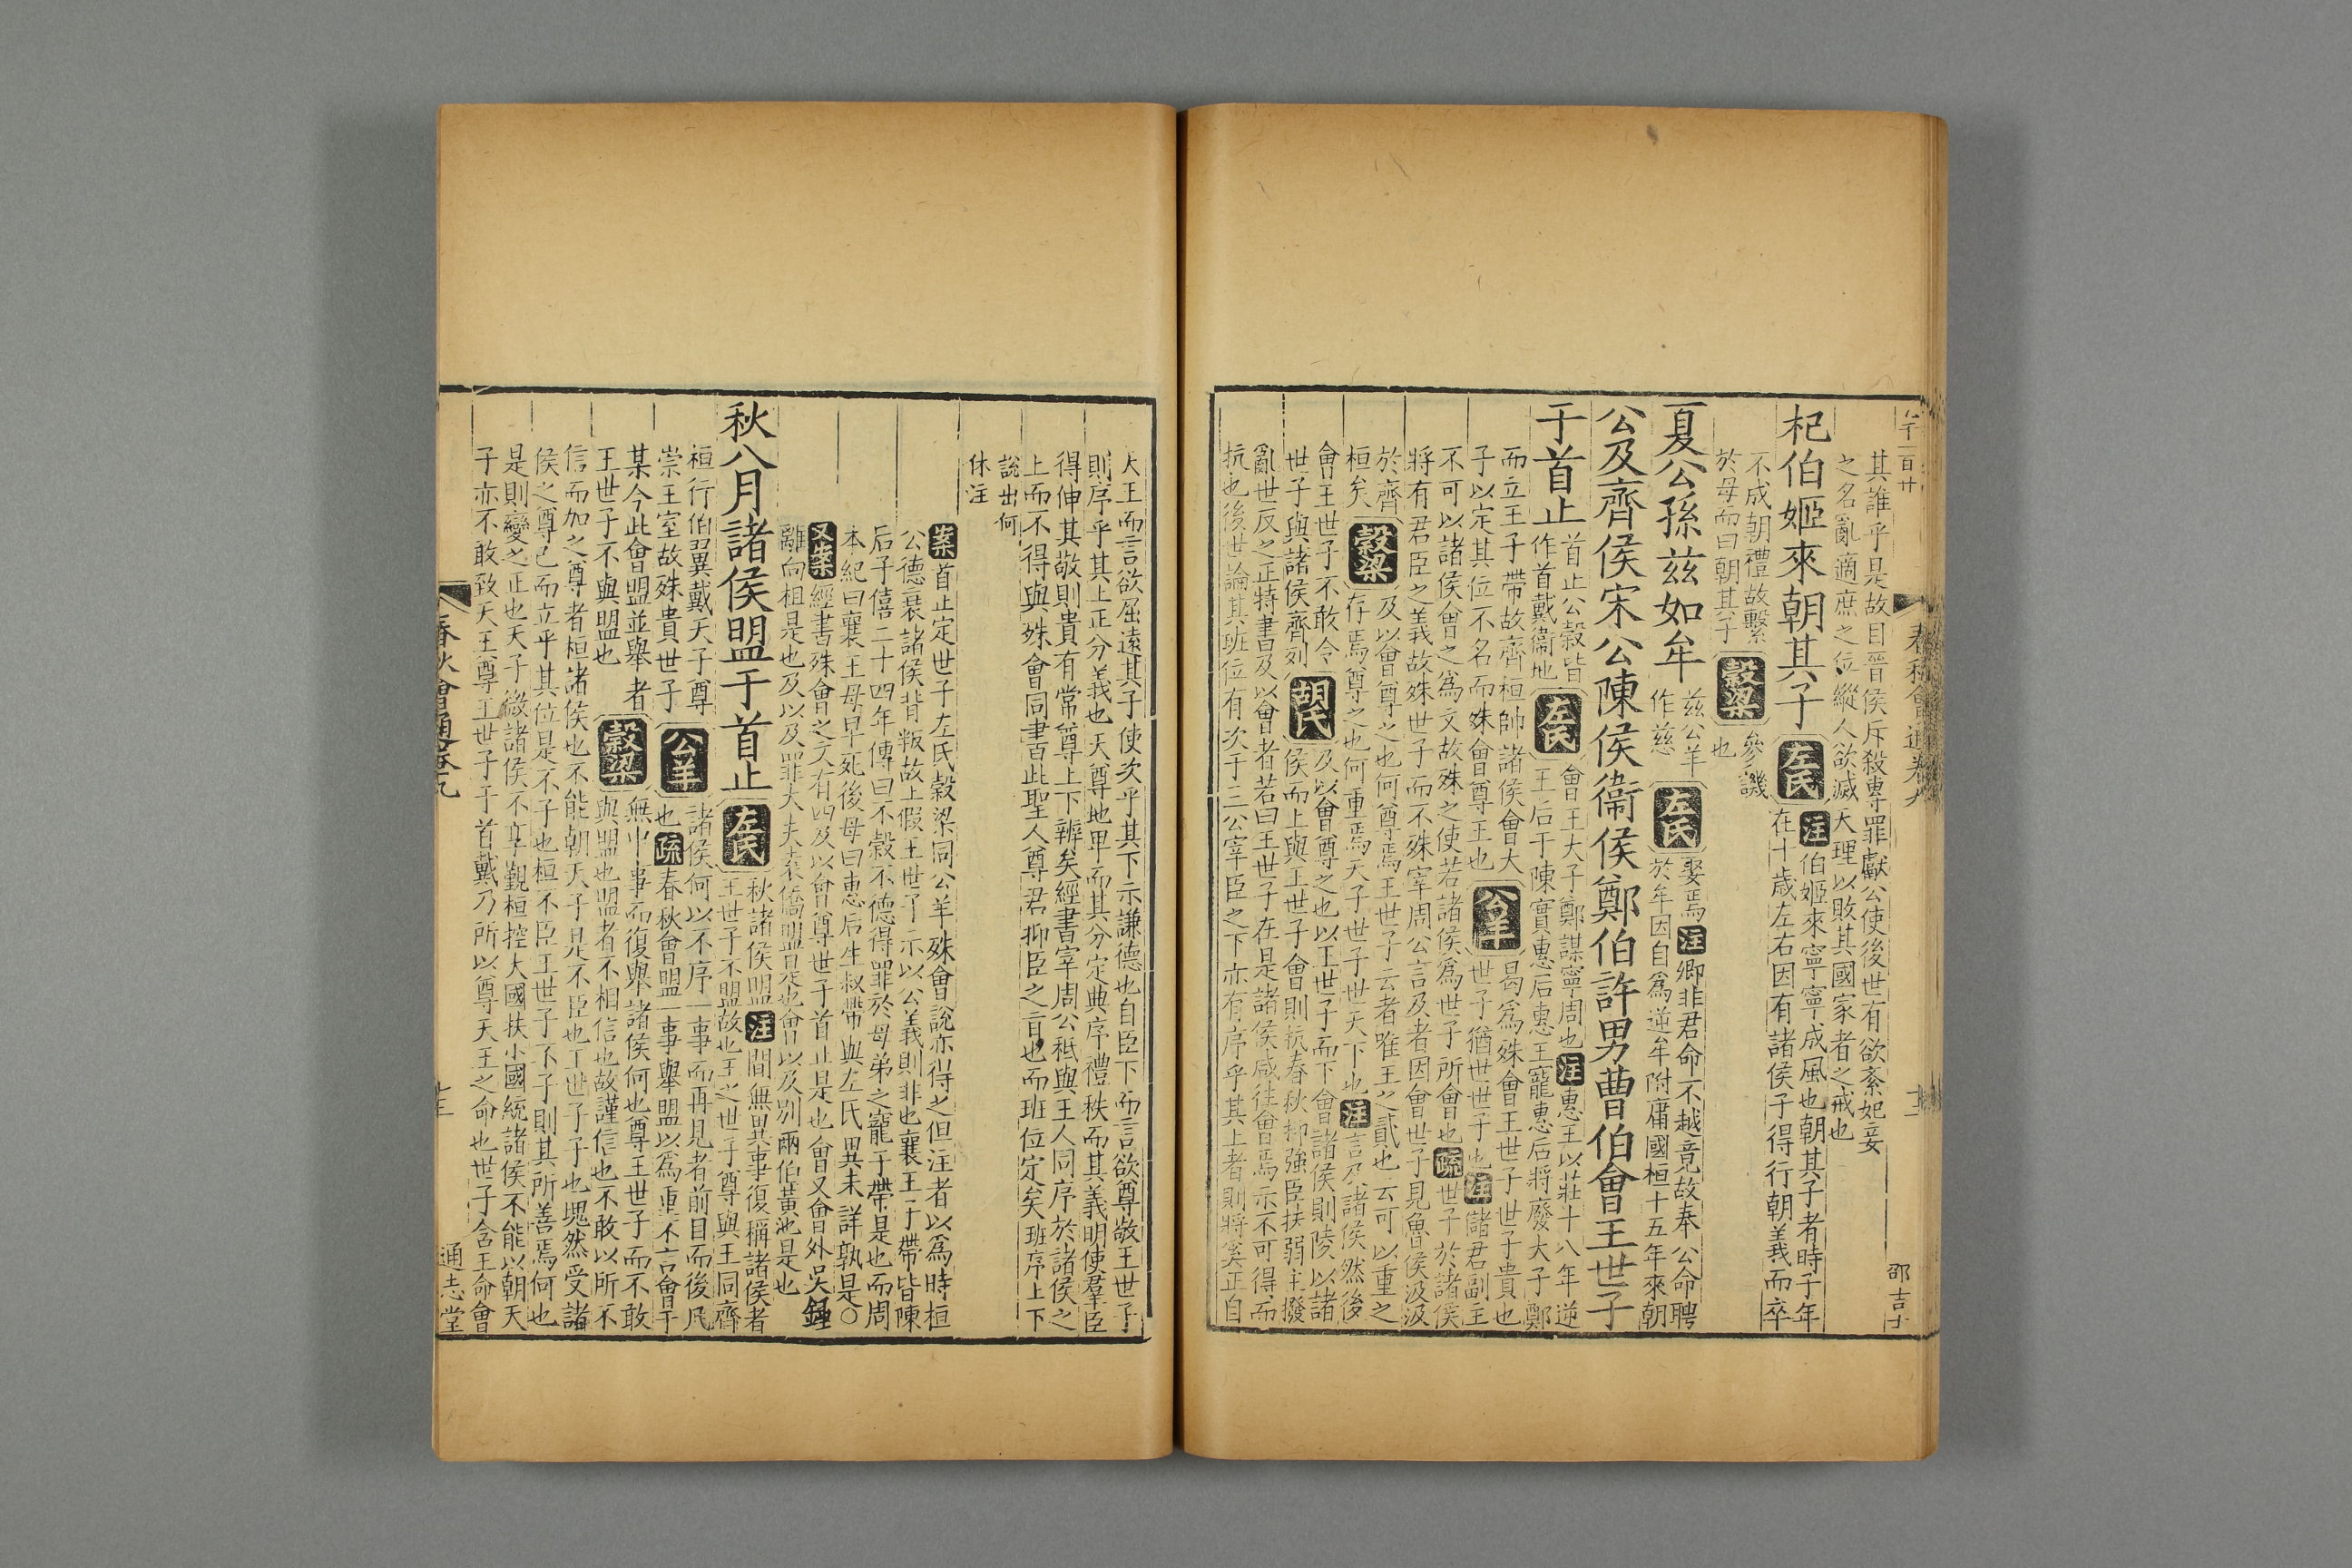 其誰乎是故目晉侯斥殺專罪獻公使後世有欲紊妃妾
之名亂適庶之位縱人欲滅天理以敗其國家者之戒也
杞伯姬來朝其子
左氏
注伯姬來寧寧成風也朝其子者時子年
在十歲左右因有諸侯子得行朝義而卒
不成朝禮故繫
於母而曰朝其子
穀梁
參譏
也
夏公孫茲如牟
茲公羊
作慈
左氏
娶焉注卿非君命不越竟故奉公命聘
於牟因自為逆牟附庸國桓十五年來朝
公及齊侯宋公陳侯衞侯鄭伯許男曹伯會王世子
于首止
首止公穀皆
作首戴衞地
左氏
會王大子鄭謀寧周也注惠王以莊十八年逆
王后于陳實惠后惠王寵惠后將廢大子鄭
而立王子帶故齊桓帥諸侯會大
子以定其位不名而殊會尊王也
公羊
曷為殊會王世子世子貴也
世子猶世世子也注儲君副主
不可以諸侯會之為文故殊之使若諸侯為世子所會也疏世子於諸侯
將有君臣之義故殊世子而不殊宰周公言及者因會世子見魯侯汲汲
於齊
桓矣
穀梁
及以會尊之也何尊焉王世子云者唯王之貳也云可以重之
存焉尊之也何重焉天子世子世天下也注言及諸侯然後
會王世子不敢令
世子與諸侯齊列
胡氏
及以會尊之也以王世子而下會諸侯則陵以諸
侯而上與王世子會則抗春秋抑強臣扶弱主撥
亂世反之正特書及以會者若曰王世子在是諸侯咸往會焉示不可得而
抗也後世論其班位有次于三公宰臣之下亦有序乎其上者則將奚正自
春秋會通卷九
邵吉士
天王而言欲屈遠其子使次乎其下示謙德也自臣下而言欲尊敬王世子
則序乎其上正分義也天尊地卑而其分定典序禮秩而其義明使羣臣
得伸其敬則貴有常尊上下辨矣經書宰周公秪與王人同序於諸侯之
上而不得與殊會同書百此聖人尊君抑臣之旨也而班位定矣班序上下
說出何
休注
案首止定世子左氏穀梁同公羊殊會說亦得之但注者以為時桓
公德衰諸侯背叛故上假王世子示以公義則非也襄王子帶皆陳
后子僖二十四年傳曰不穀不德得罪於母弟之寵子帶是也而周
本紀曰襄王母早死後母曰惠后生叔帶與左氏異未詳孰是○
又案經書殊會之文有四及以會尊世子首止是也會又會外吳鍾
離向柤是也及以及罪大夫袁僑盟是也會以及別兩伯黃池是也
秋八月諸侯盟于首止
左氏
秋諸侯盟注間無異事復稱諸侯者
王世子不盟故也王之世子尊與王同齊
桓行伯翼戴天子尊
崇王室故殊貴世子
公羊
諸侯何以不序一事而再見者前目而後凡
也疏春秋會盟一事舉盟以為重不言會于
某今此會盟並舉者
王世子不與盟也
穀梁
無中事而復舉諸侯何也尊王世子而不敢
與盟也盟者不相信也故謹信也不敢以所不
信而加之尊者桓諸侯也不能朝天子是不臣也王世子子也塊然受諸
侯之尊己而立乎其位是不子也桓不臣王世子不子則其所善焉何也
是則變之正也天子微諸侯不享覲桓控大國扶小國統諸侯不能以朝天
子亦不敢致天王尊王世子于首戴乃所以尊天王之命也世子含王命會
春秋會通卷九
通志堂